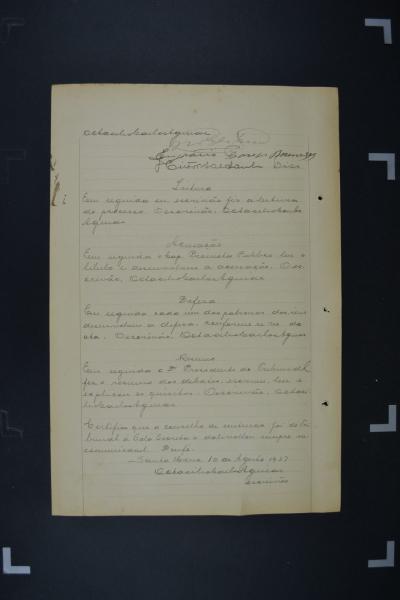 Octacilio Carlos Aguiar
Leitura
Em seguida eu escrivão fiz a leitura
do processo. O escrivão, Octacilio Carlos
Aguiar
Acusação
Em seguida o Promotor Publico leu o
libelo e desenvolveu a acusação. O es-
crivão, Octacilio Carlos Aguiar
Defesa
Em seguida cada um dos patronos dos réus
desenvolveu a defesa, conforme se vê da
ata. O escrivão, Octacilio Carlos Aguiar
Resumo
Em seguida o Dr. Presidente do Tribunal
fez o resumo dos debates, escreveu, leu e
explicou os quesitos. O escrivão, Octaci-
lio Carlos Aguiar
Certifico que o conselho de sentença foi do Tri-
bunal á Sala Secreta e sempre in-
comunicavel. Dou fé.
Santa 10 de Agosto 1937
Octacilio Carlos Aguiar
escrivão